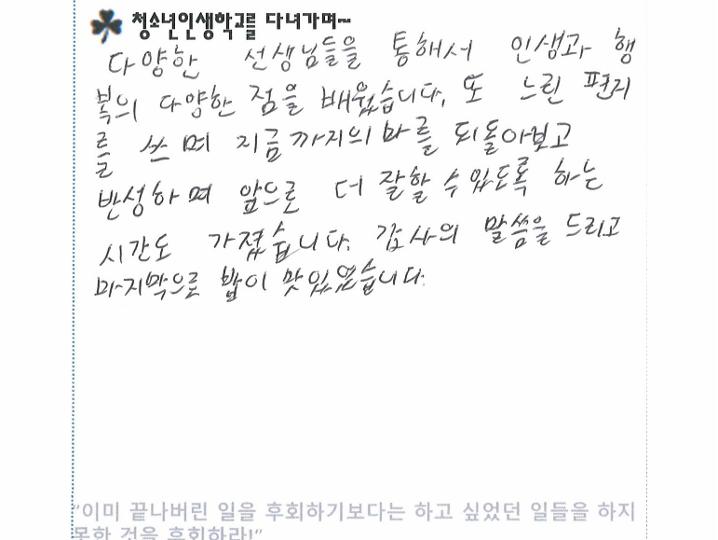 청소년인생학교를 다녀가며~
다양한 선생님들을 통해서 인생과 행
복의 다양한 점을 배웠습니다. 또 느린 편지
를 쓰며 지금까지의 나를 되돌아보고
반성하며 앞으로 더 잘할 수 있도록 하는
시간도 가졌습니다. 감사의 말씀을 드리고
마지막으로 밥이 맛있었습니다.
"이미 끝나버린 일을 후회하기보다는 하고 싶었던 일들을 하지
못한 것을 후회하라!"